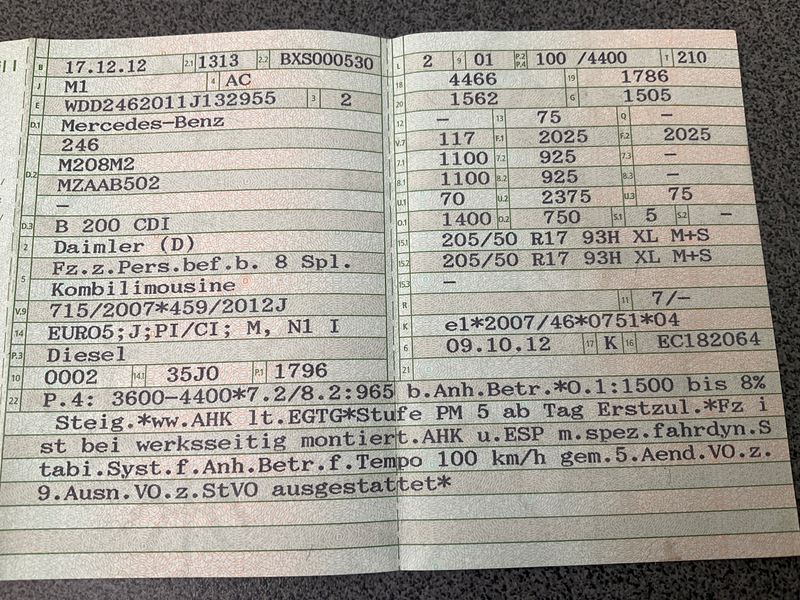 B 17.12.12 2.1 1313 2.2 BXS000530
J M1 4 AC
E WDD2462011J132955 3 2
D.1 Mercedes-Benz
246
D.2 M208M2
MZAAB502
–
D.3 B 200 CDI
2 Daimler (D)
5 Fz.z.Pers.bef.b. 8 Spl.
Kombilimousine
V.9 715/2007*459/2012J
14 EURO5;J;PI/CI; M, N1 I
P.3 Diesel
10 0002 14.1 35J0 P.1 1796
L 2 9 01 P.2 P.4 100 /4400 T 210
18 4466 19 1786
20 1562 G 1505
12 – 13 75 Q –
V.7 117 F.1 2025 F.2 2025
7.1 1100 7.2 925 7.3 –
8.1 1100 8.2 925 8.3 –
U.1 70 U.2 2375 U.3 75
O.1 1400 O.2 750 S.1 5 S.2 –
15.1 205/50 R17 93H XL M+S
15.2 205/50 R17 93H XL M+S
15.3 –
R 11 7/–
K e1*2007/46*0751*04
6 09.10.12 17 K 16 EC182064
21
22 P.4: 3600-4400*7.2/8.2:965 b.Anh.Betr.*O.1:1500 bis 8%
Steig.*ww.AHK lt.EGTG*Stufe PM 5 ab Tag Erstzul.*Fz i
st bei werksseitig montiert.AHK u.ESP m.spez.fahrdyn.S
tabi.Syst.f.Anh.Betr.f.Tempo 100 km/h gem.5.Aend.VO.z.
9.Ausn.VO.z.StVO ausgestattet*